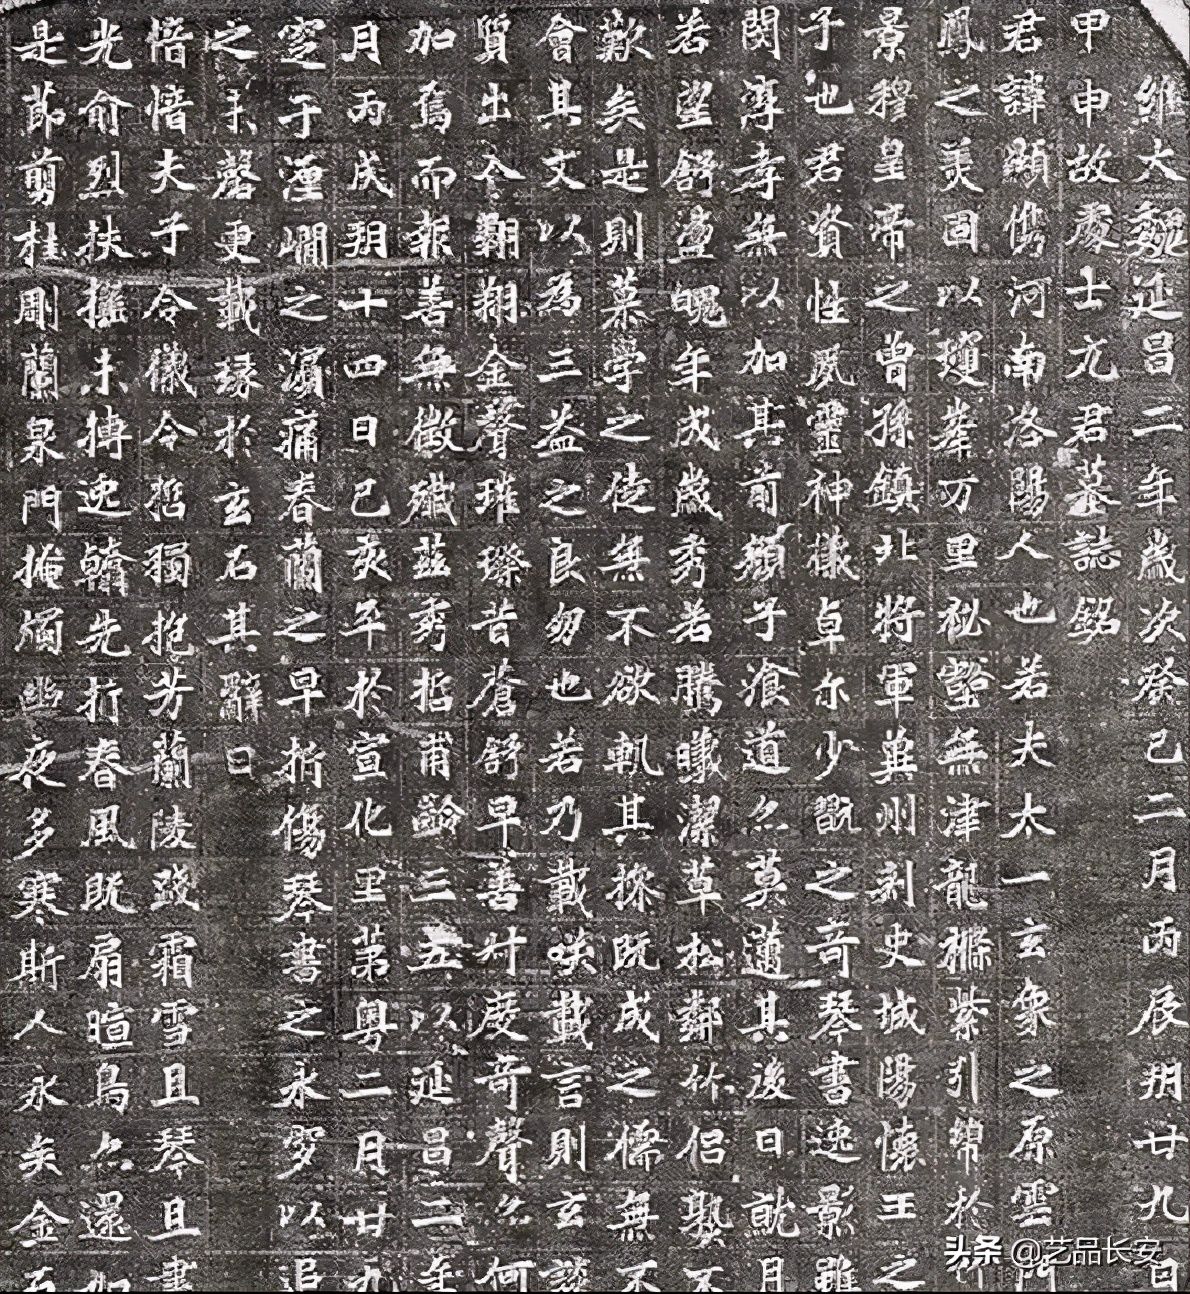 維大魏延昌二年歲次癸巳二月丙辰朔廿九日
甲申故處士元君墓誌銘
君諱顯儁河南洛陽人也若夫太一玄象之原雲門
鳳之美固以瓊峯万里秘壑無津龍樔紫引綿於竹
景穆皇帝之曾孫鎮北將軍冀州刺史城陽懷王之
子也君資性夙靈神儀卓尓少翫之奇琴書逸影雖
閔淳孝無以加其前顏子飡道亦莫邁其後日就月
若望舒盪魄年成歲秀若騰曦潔草松鄰竹侶熟不
歎矣是則慕學之徒無不欲軌其操既成之儒無不
會其文以為三益之良朋也若乃載咲載言則玄談
質出入翱翔金聲璀璨昔蒼舒早善叶度奇聲亦何
加焉而報善無徵殲兹秀哲甫齡三五以延昌二年
月丙戌朔十四日己亥卒於宣化里第粵二月廿九
窆于瀍澗之濱痛春蘭之早折傷琴書之永穸以追
之未馨更載琢於玄石其辭曰
愔愔夫子令儀令哲獨抱芳蘭陵踐霜雪且琴且書
光俞烈扶搖未摶逸翰先折春風既扇暄鳥亦還如
是節剪桂彫蘭泉門掩燭幽夜多寒斯人永矣金石
头条 @艺品长安